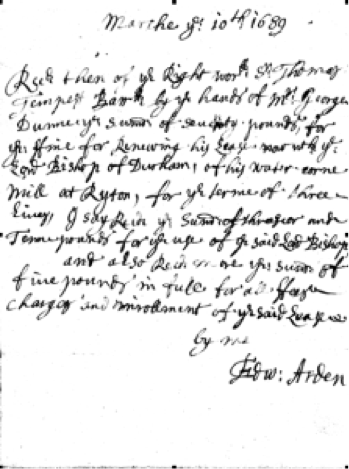 Marche ye 10th 1689
Recd then of ye Right worll Sr Thomas
Tempest Barrtt by ye hands of Mr George
Dunne ye Summ of seventy pounds, for
ye ffine for Renewing his Lease now wth ye
Lord Bishop of Durham, of his water corne
mill at Ryton, for ye terme of three
Lives, I say Recd ye Summ of threescore and
Tenne pounds for ye use of ye said Lord Bishop
and also Recd more ye Summ of
five pounds in full for all ffees
charges and inrollment of ye said Lease
by me
Edw: Arden